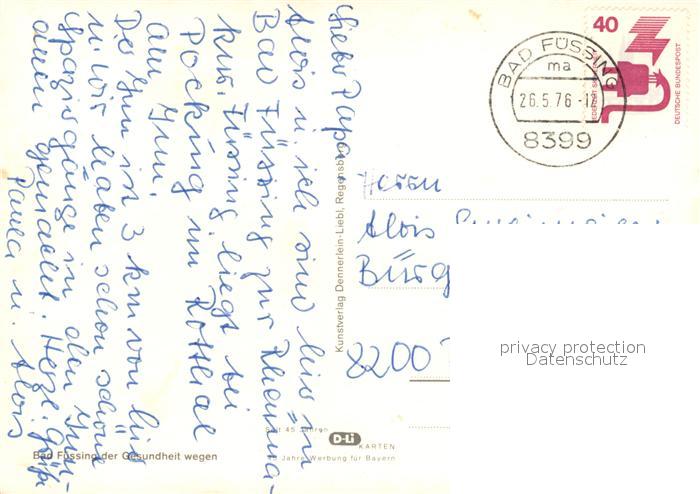 Lieber Papa,
Alois u. ich sind hier in
Bad Füssing zur Rheuma-
kur. Füssing liegt bei
Pocking im Rottal
am Inn.
Der Inn ist 3 km von hier
u. wir haben schon schöne
Spaziergänge in den Inn-
auen gemacht. Herzl. Grüße
Paula u. Alois
Bad Füssing der Gesundheit wegen
Kunstverlag Dennerlein-Liebl, Regensburg
Seit 45 Jahren
D-Li
KARTEN
45 Jahre Werbung für Bayern
BAD FÜSSING
ma
26.5.76
8399
40
DEUTSCHE BUNDESPOST
Herrn
Alois
Bürg
8200
privacy protection
Datenschutz